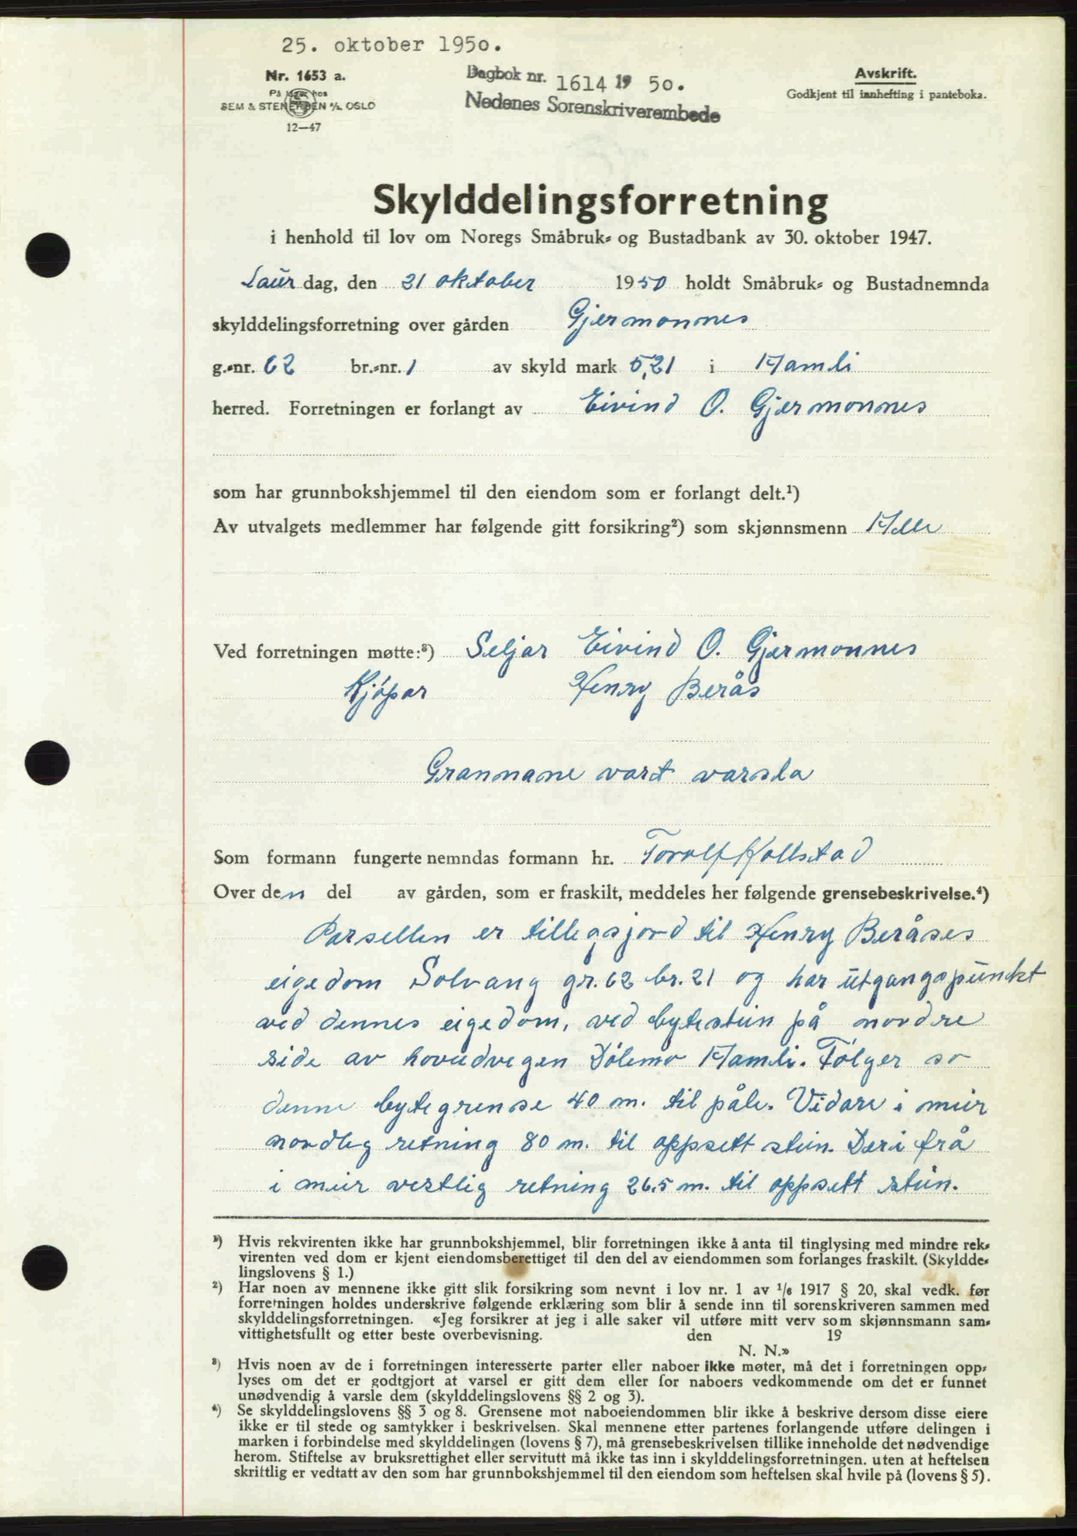 25. oktober 1950.
Nr. 1653 a.
SEM & STENERSEN A/S. OSLO
12—47
Dagbok nr. 1614 19 50.
Nedenes Sorenskriverembede
Avskrift.
Godkjent til innhefting i panteboka.
Skylddelingsforretning
i henhold til lov om Noregs Småbruk- og Bustadbank av 30. oktober 1947.
Laur dag, den 21 oktober 1950 holdt Småbruk- og Bustadnemnda
skylddelingsforretning over gården Gjermonnes
g.-nr. 62 br.-nr. 1 av skyld mark 5,21 i Hamli
herred. Forretningen er forlangt av Eivind O. Gjermonnes
som har grunnbokshjemmel til den eiendom som er forlangt delt.¹)
Av utvalgets medlemmer har følgende gitt forsikring²) som skjønnsmenn Alle
Ved forretningen møtte:³) Seljar Eivind O. Gjermonnes
Kjøpar Henry Berås
Grannane vart varsla
Som formann fungerte nemndas formann hr. Torolf Kollstad
Over den del av gården, som er fraskilt, meddeles her følgende grensebeskrivelse.⁴)
Parsellen er tilleggsjord til Henry Beråses
eigedom Solvang gr. 62 br. 21 og har utgangspunkt
ved dennes eigedom, ved bytestein på nordre
side av hovudvegen Dölemo Hamli. Fölger so
denne bytegrense 40 m. til påle. Vidare i meir
nordleg retning 80 m. til oppsett stein. Deri frå
i meir vestlig retning 26.5 m. til oppsett stein.
¹) Hvis rekvirenten ikke har grunnbokshjemmel, blir forretningen ikke å anta til tinglysing med mindre rek-
virenten ved dom er kjent eiendomsberettiget til den del av eiendommen som forlanges fraskilt. (Skyldde-
lingslovens § 1.)
²) Har noen av mennene ikke gitt slik forsikring som nevnt i lov nr. 1 av ¹/₆ 1917 § 20, skal vedk. før
forretningen holdes underskrive følgende erklæring som blir å sende inn til sorenskriveren sammen med
skylddelingsforretningen. «Jeg forsikrer at jeg i alle saker vil utføre mitt verv som skjønnsmann sam-
vittighetsfullt og etter beste overbevisning. den 19
N. N.»
³) Hvis noen av de i forretningen interesserte parter eller naboer ikke møter, må det i forretningen opp-
lyses om det er godtgjort at varsel er gitt dem eller for naboers vedkommende om det er funnet
unødvendig å varsle dem (skylddelingslovens §§ 2 og 3).
⁴) Se skylddelingslovens §§ 3 og 8. Grensene mot naboeiendommen blir ikke å beskrive dersom disse eiere
ikke er til stede og samtykker i beskrivelsen. Skal mennene etter partenes forlangende utføre delingen i
marken i forbindelse med skylddelingen (lovens § 7), må grensebeskrivelsen tillike inneholde det nødvendige
herom. Stiftelse av bruksrettighet eller servitutt må ikke tas inn i skylddelingsforretningen. uten at heftelsen
skriftlig er vedtatt av den som har grunnbokshjemmel til den eiendom som heftelsen skal hvile på (lovens § 5).